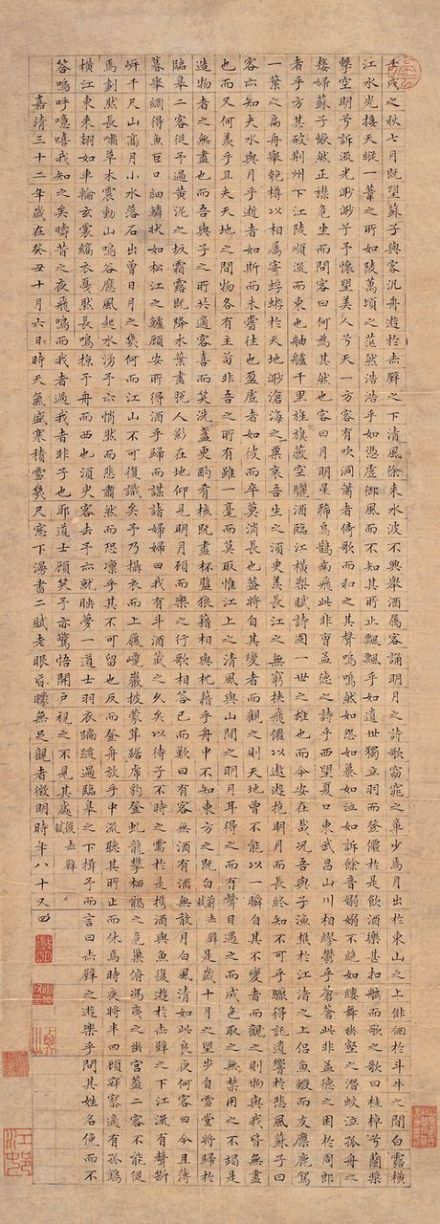 壬戌之秋七月既望蘇子與客汎舟遊於赤壁之下清風徐来水波不興舉酒属客誦明月之詩歌窈窕之章少焉月出於東山之上徘徊於斗牛之間白露橫
江水光接天縱一葦之所如陵萬頃之茫然浩浩乎如憑虛御風而不知其所止飄飄乎如遺世獨立羽而登僊於是飲酒樂甚扣舷而歌之歌曰桂棹兮蘭槳
擊空明兮訴流光渺渺兮予懷望美人兮天一方客有吹洞簫者倚歌而和之其聲嗚嗚然如怨如慕如泣如訴餘音嫋嫋不絕如縷舞幽壑之潛蛟泣孤舟之
嫠婦蘇子愀然正襟危坐而問客曰何為其然也客曰月明星稀烏鵲南飛此非曹孟德之詩乎西望夏口東武昌山川相繆鬱乎蒼蒼此非孟德之困於周郎
者乎方其破荊州下江陵順流而東也舳艫千里旌旗蔽空釃酒臨江橫槊賦詩固一世之雄也而今安在哉況吾與子漁樵於江渚之上侶魚鰕而友麋鹿駕
一葉之扁舟舉匏樽以相屬寄蜉蝣於天地渺滄海之一粟哀吾生之須臾羨長江之無窮挾飛僊以遨遊抱明月而長終知不可乎驟得託遺響於悲風蘇子曰
客亦知夫水與月乎逝者如斯而未嘗往也盈虛者如彼而卒莫消長也蓋將自其變者而觀之則天地曾不能以一瞬自其不變者而觀之則物與我皆無盡
也而又何羨乎且夫天地之間物各有主苟非吾之所有雖一毫而莫取惟江上之清風與山間之明月耳得之而為聲目遇之而成色取之無禁用之不竭是
造物者之無盡也而吾與子之所共適客喜而笑洗盞更酌肴核既盡杯盤狼藉相與枕藉乎舟中不知東方之既白 前赤壁 是歲十月之望步自雪堂將歸於
臨皋二客從予過黃泥之坂霜露既降木葉盡脫人影在地仰見明月顧而樂之行歌相答已而歎曰有客無酒有酒無肴月白風清如此良夜何客曰今且薄
暮舉網得魚巨口細鱗狀如松江之鱸顧安所得酒乎歸而謀諸婦婦曰我有斗酒藏之久矣以待子不時之需於是携酒與魚復遊於赤壁之下江流有聲斷
岍千尺山高月小水落石出曾日月之幾何而江山不可復識矣予乃攝衣而上履巉巖披蒙茸踞虎豹登虬龍攀栖鶻之危巢俯馮夷之幽宮蓋二客不能從
焉劃然長嘯草木震動山鳴谷應風起水湧予亦悄然而悲肅然而恐凜乎其不可留也反而登舟放乎中流聽其所止而休焉時夜將半四顧寂寥適有孤鶴
橫江東来翅如車輪玄裳縞衣戛然長鳴掠予舟而西也須臾客去予亦就睡夢一道士羽衣蹁躚過臨皋之下揖予而言曰赤壁之遊樂乎問其姓名俛而不
答嗚呼噫嘻我知之矣疇昔之夜飛鳴而我過者非子也耶道士顧笑予亦驚悟開戶視之不見其處 後赤壁
嘉靖三十二年歲在癸丑十月六日時天氣盛寒積雪幾尺窓下漫書二賦老眼昏矇無足觀者徵明時年八十又四